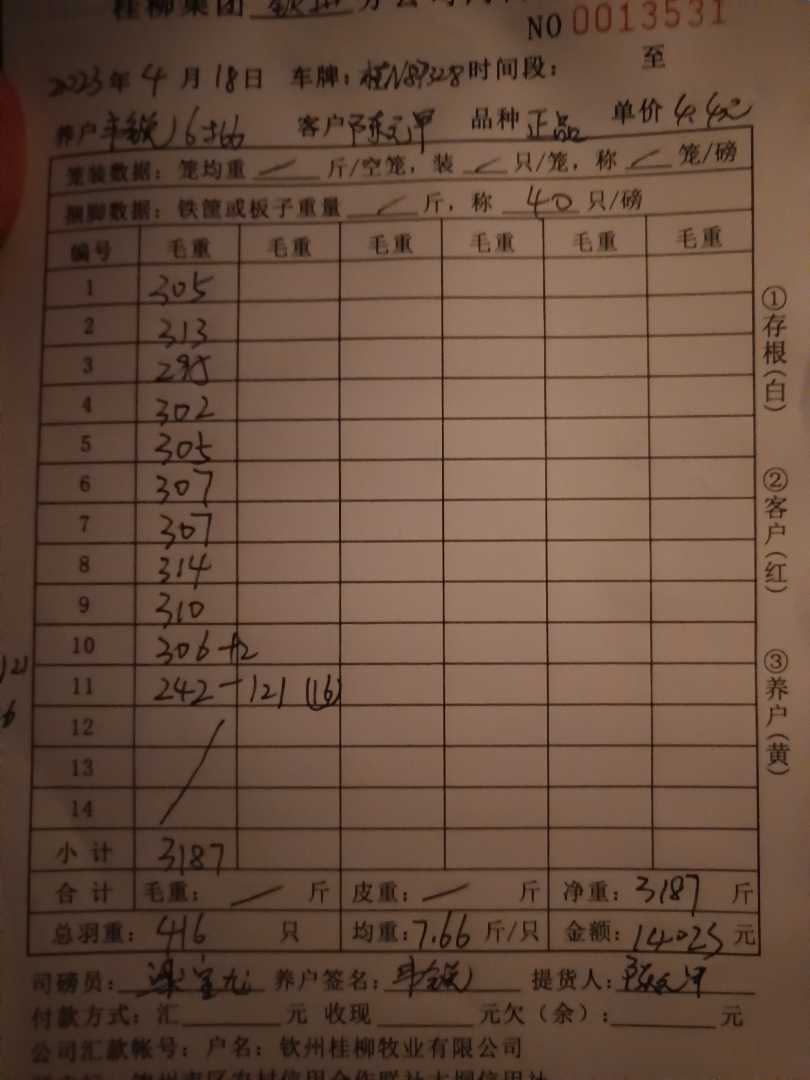 桂柳集团 钦州 分公司
NO 0013531
2023年 4 月 18日 车牌:桂N89328 时间段: 至
养户 16±66 客户 陈元甲 品种 正品 单价 4.4元
笼装数据: 笼均重 / 斤/空笼, 装 / 只/笼, 称 / 笼/磅
捆脚数据: 铁筐或板子重量 / 斤, 称 40 只/磅
编号 毛重 毛重 毛重 毛重 毛重 毛重
1 305
2 313
3 295
4 302
5 305
6 307
7 307
8 314
9 310
10 306 +2
11 242-121 (16)
12
13
14
小计 3187
合计 毛重: / 斤 皮重: / 斤 净重: 3187 斤
总羽重: 416 只 均重:7.66 斤/只 金额: 14023 元
司磅员: 养户签名: 提货人: 陈元甲
付款方式:汇 元 收现 元欠(余): 元
公司汇款帐号: 户名: 钦州桂柳牧业有限公司
①存根(白)
②客户(红)
③养户(黄)
121
6